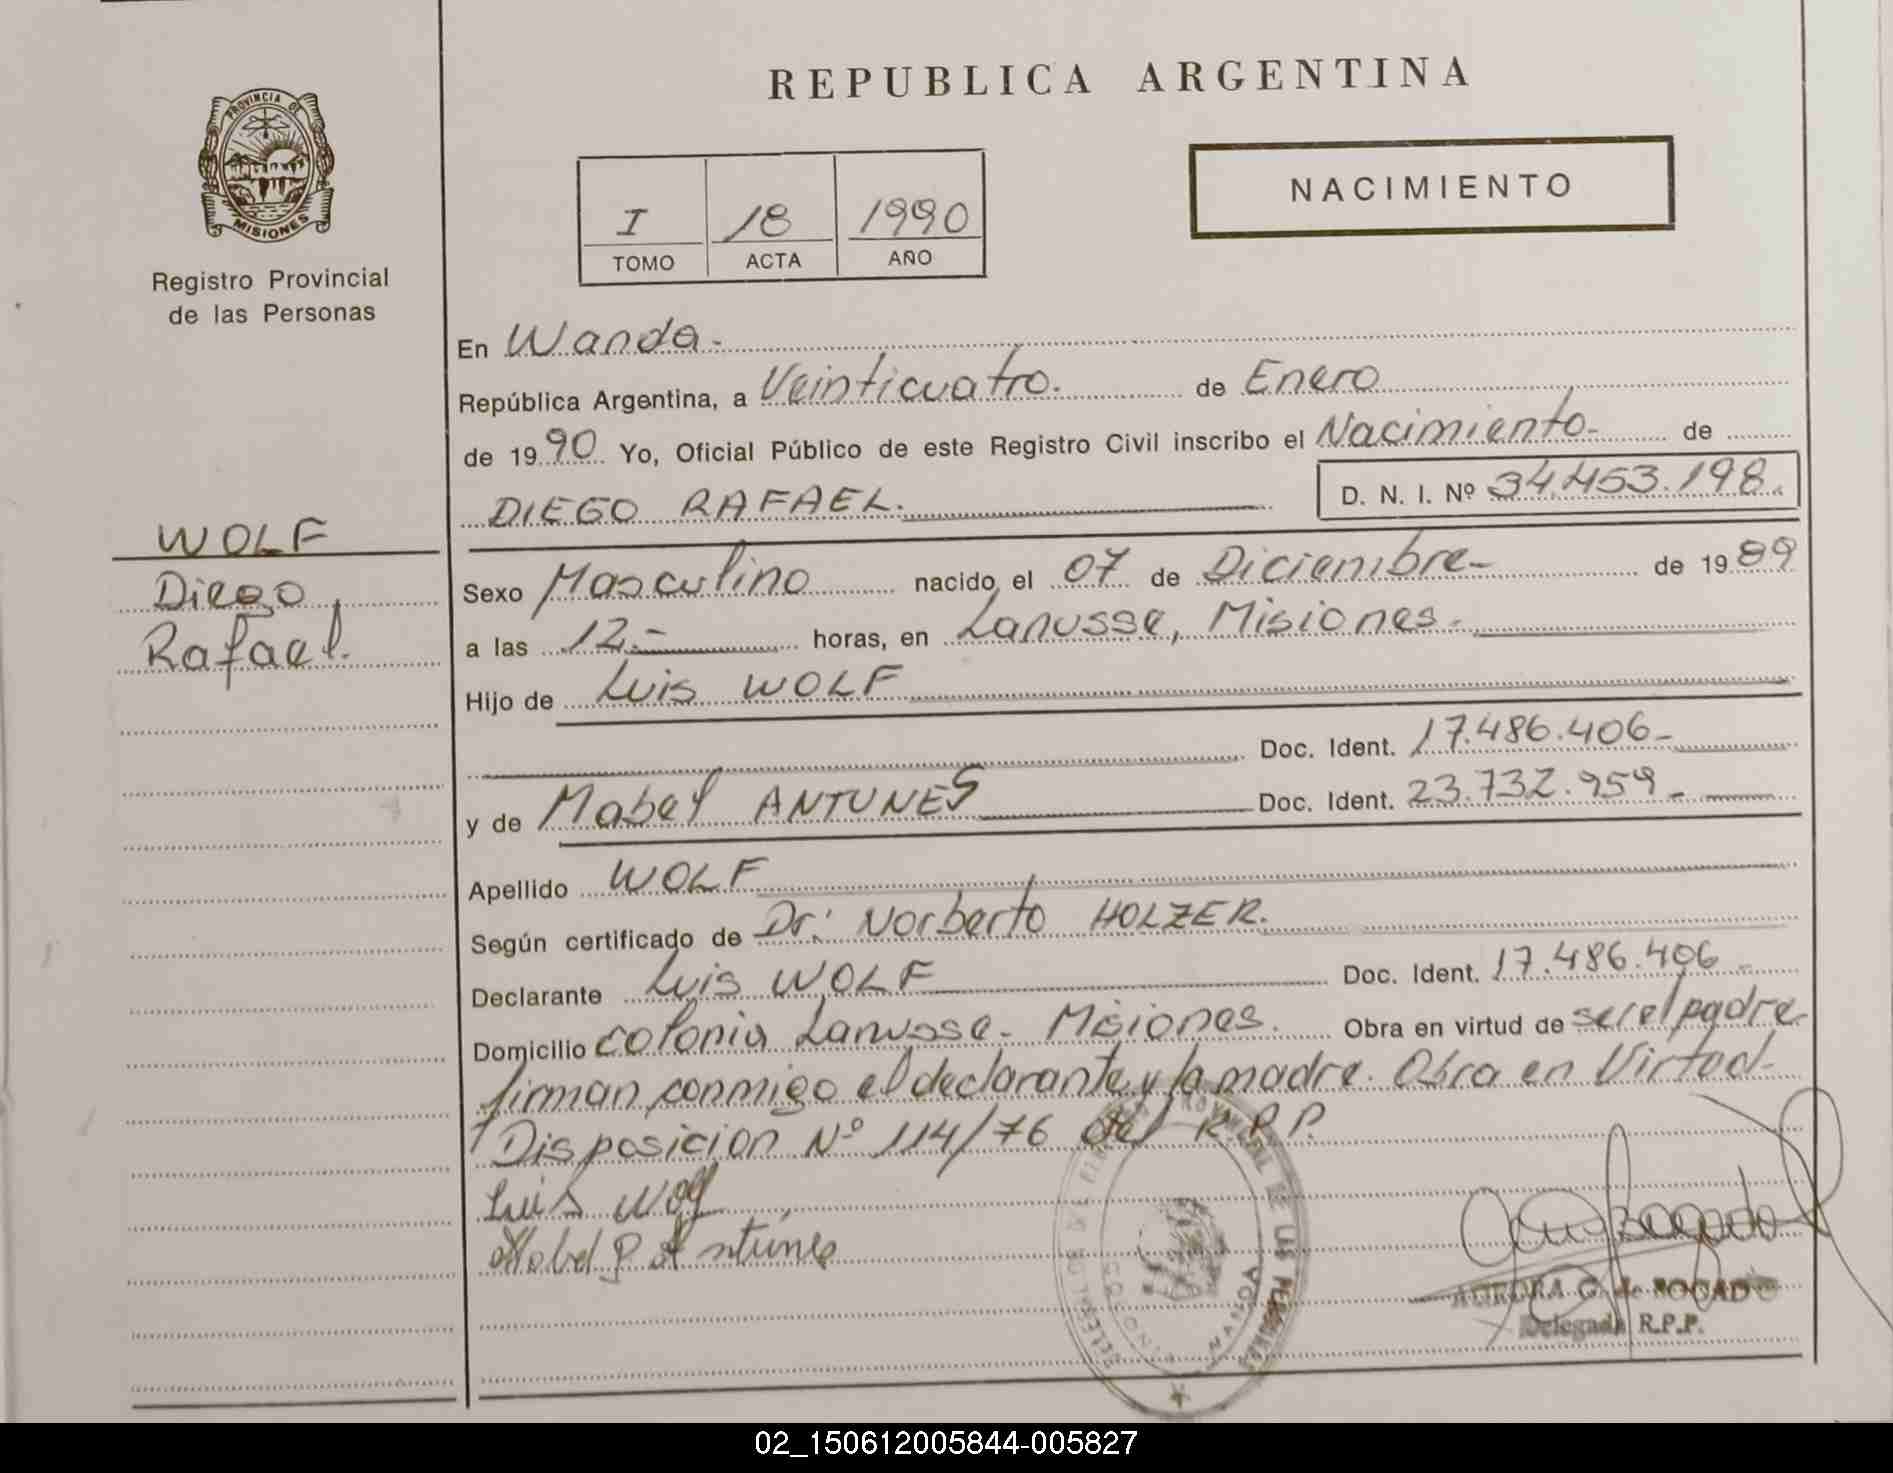 PROVINCIA DE
MISIONES
Registro Provincial
de las Personas
WOLF
Diego
Rafael.
REPUBLICA ARGENTINA
NACIMIENTO
I 18 1990
TOMO ACTA AÑO
En Wanda.-
República Argentina, a Veinticuatro. de Enero
de 1990 Yo, Oficial Público de este Registro Civil inscribo el Nacimiento- de
DIEGO RAFAEL. D. N. I. Nº 34.453.198.
Sexo Masculino nacido el 07 de Diciembre- de 1989
a las 12.- horas, en Lanusse, Misiones.-
Hijo de Luis WOLF
Doc. Ident. 17.486.406-
y de Mabel ANTUNES Doc. Ident. 23.732.959-
Apellido WOLF
Según certificado de Dr: Norberto HOLZER.
Declarante Luis WOLF Doc. Ident. 17.486.406-
Domicilio colonia Lanusse- Misiones. Obra en virtud de ser el padre
firman conmigo el declarante y la madre. Obra en Virtud-
Disposicion Nº 114/76 del R.P.P.
Luis Wolf
Mabel Antunes
WANDA
G. de
Delegada R.P.P.
02_150612005844-005827